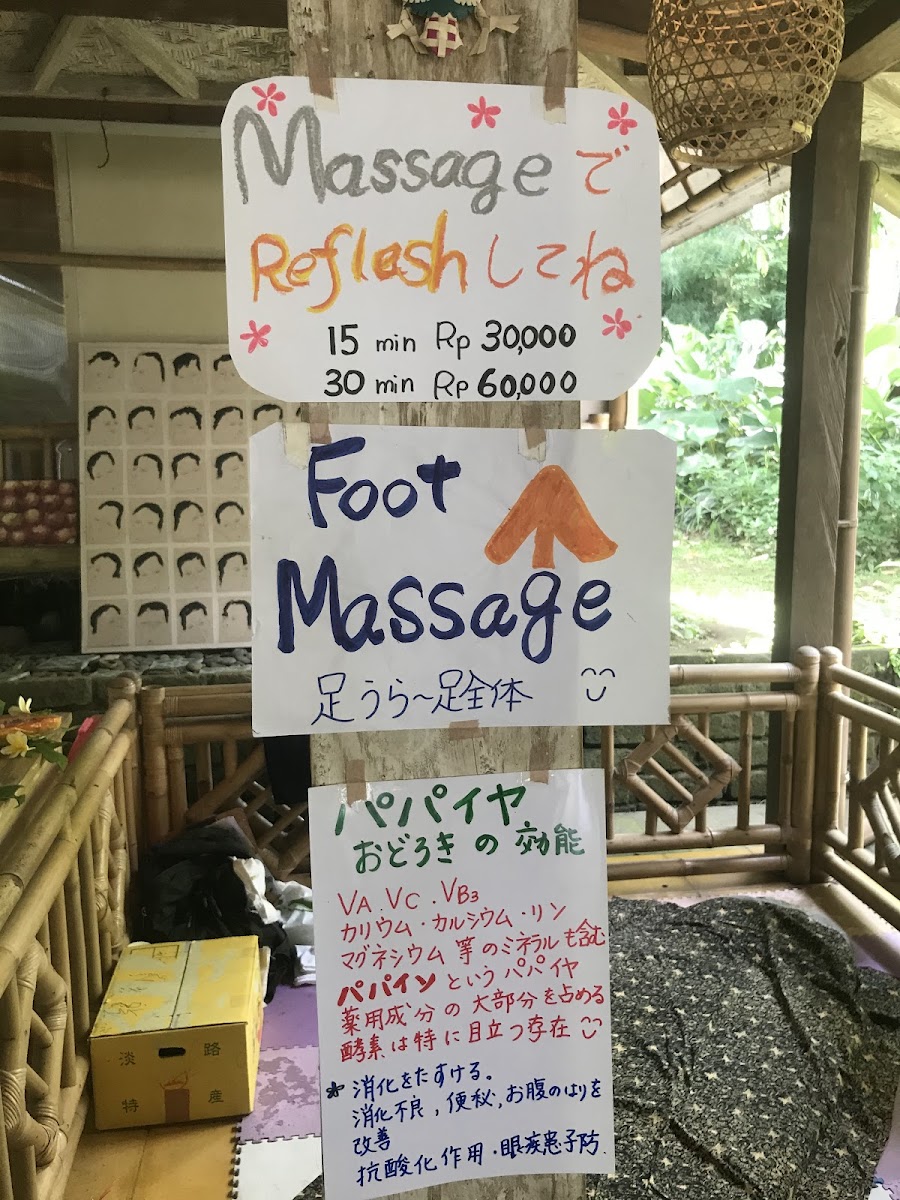 Massage で
Reflesh してね
15 min Rp 30,000
30 min Rp 60,000
Foot
Massage
足うら〜足全体
パパイヤ
おどろきの効能
VA.VC.VB3
カリウム・カルシウム・リン
マグネシウム等のミネラルも含む
パパインというパパイヤ
薬用成分の大部分を占める
酵素は特に目立つ存在
消化をたすける。
消化不良,便秘,お腹のはりを
改善
抗酸化作用・眼疾患予防.
淡 路
特 産